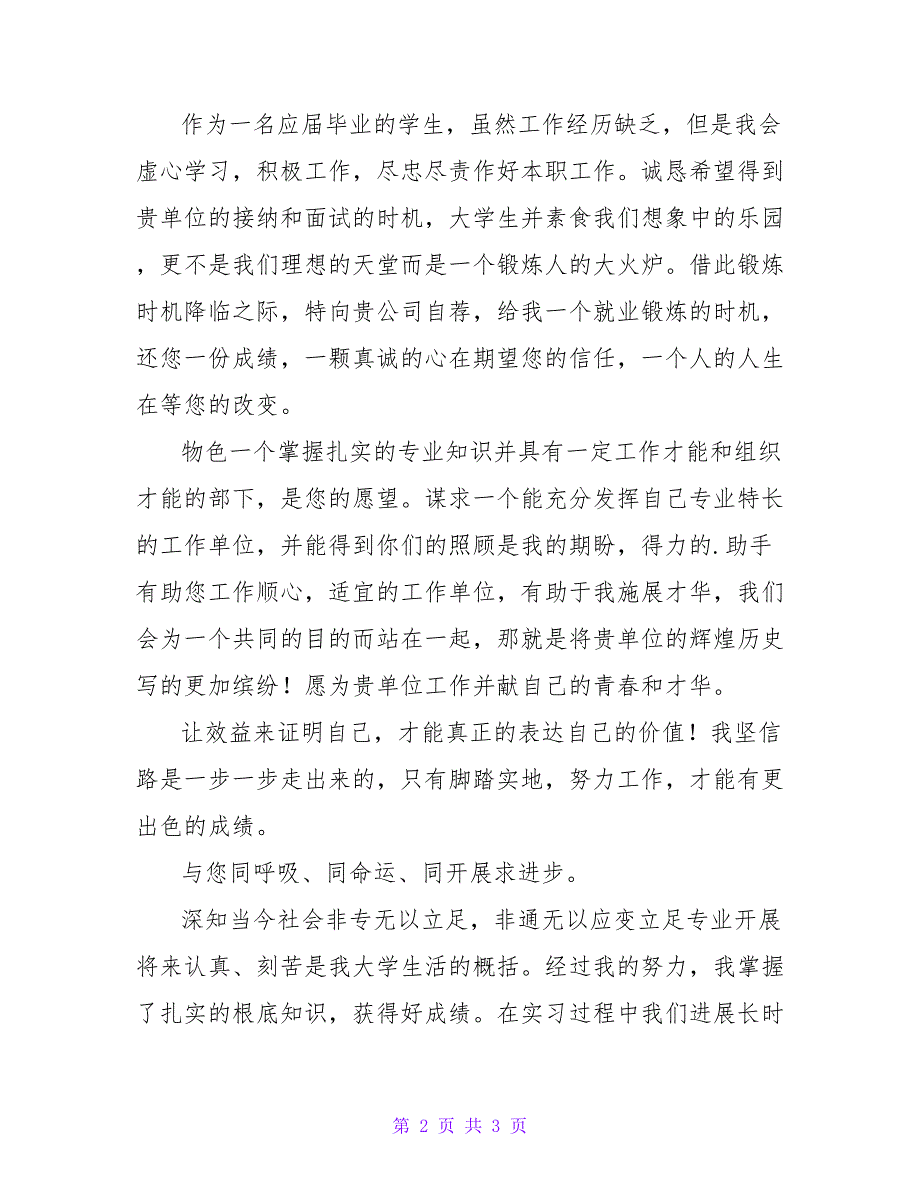 作为一名应届毕业的学生，虽然工作经历缺乏，但是我会
虚心学习，积极工作，尽忠尽责作好本职工作。诚恳希望得到
贵单位的接纳和面试的时机，大学生并素食我们想象中的乐园
，更不是我们理想的天堂而是一个锻炼人的大火炉。借此锻炼
时机降临之际，特向贵公司自荐，给我一个就业锻炼的时机，
还您一份成绩，一颗真诚的心在期望您的信任，一个人的人生
在等您的改变。
物色一个掌握扎实的专业知识并具有一定工作才能和组织
才能的部下，是您的愿望。谋求一个能充分发挥自己专业特长
的工作单位，并能得到你们的照顾是我的期盼，得力的.助手
有助您工作顺心，适宜的工作单位，有助于我施展才华，我们
会为一个共同的目的而站在一起，那就是将贵单位的辉煌历史
写的更加缤纷！愿为贵单位工作并献自己的青春和才华。
让效益来证明自己，才能真正的表达自己的价值！我坚信
路是一步一步走出来的，只有脚踏实地，努力工作，才能有更
出色的成绩。
与您同呼吸、同命运、同开展求进步。
深知当今社会非专无以立足，非通无以应变立足专业开展
将来认真、刻苦是我大学生活的概括。经过我的努力，我掌握
了扎实的根底知识，获得好成绩。在实习过程中我们进展长时
第 2 页 共 3 页